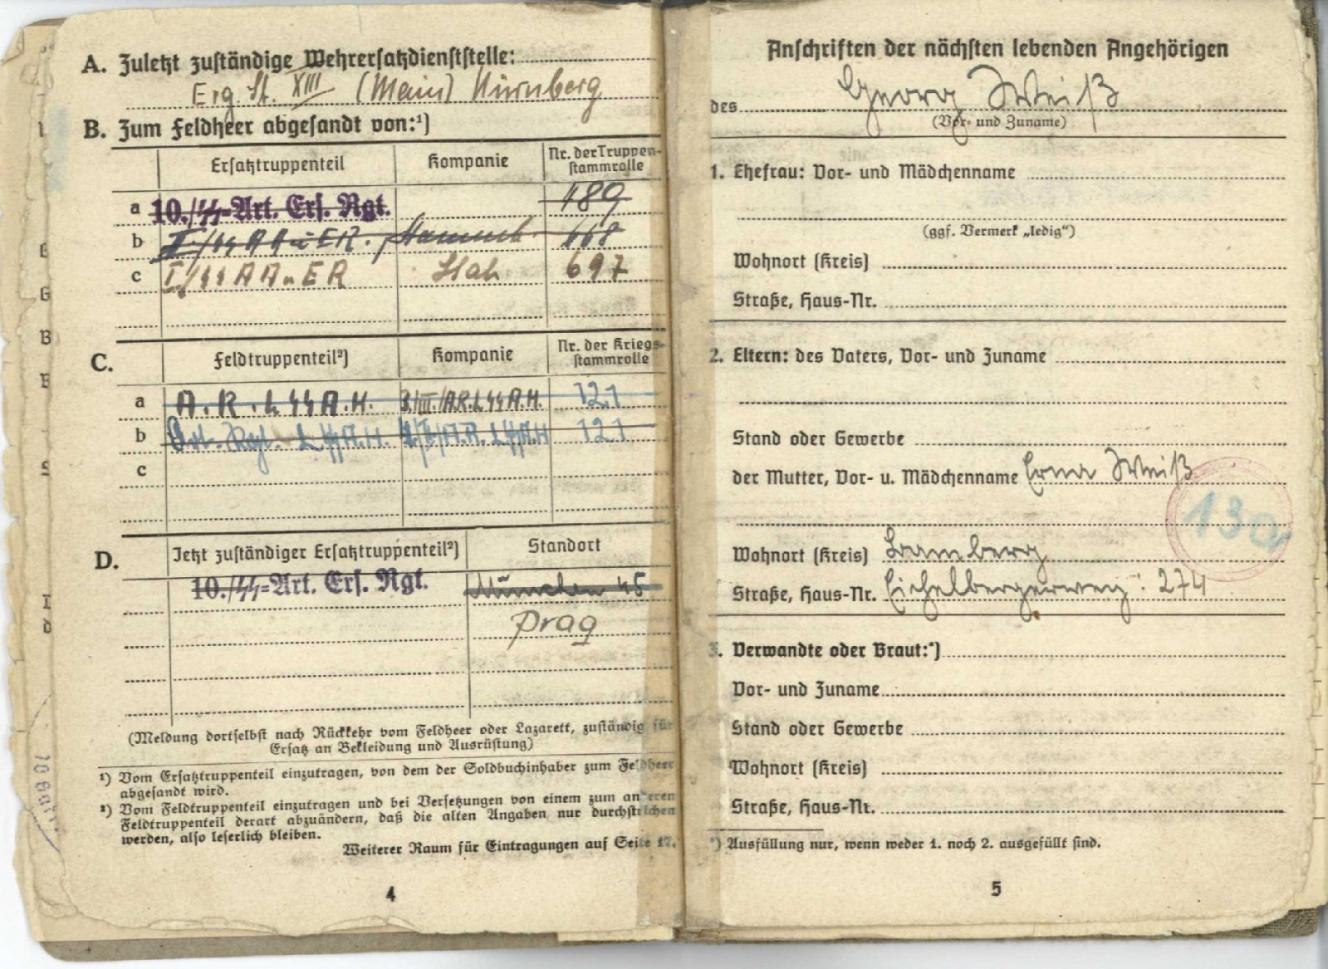 A. Zuletzt zuständige Wehrersatzdienststelle:
Erg. St. XIII (Main) Nürnberg
B. Zum Feldheer abgesandt von:¹)
Ersatztruppenteil Kompanie Nr. der Truppen-
stammrolle
a 10./SS-Art. Ers. Rgt. 489
b I/SS A A u E R. 668
c I/SS A A u E R Stab 697
C. Feldtruppenteil²) Kompanie Nr. der Kriegs-
stammrolle
a A.R.LSSAH. 3/III/A.R.LSSAH. 121
b Art. Rgt. LSSAH. A.R. LSSAH 121
c
D. Jetzt zuständiger Ersatztruppenteil²) Standort
10./SS-Art. Ers. Rgt. München 45
Prag
(Meldung dortselbst nach Rückkehr vom Feldheer oder Lazarett, zuständig für
Ersatz an Bekleidung und Ausrüstung)
¹) Vom Ersatztruppenteil einzutragen, von dem der Soldbuchinhaber zum Feldheer
abgesandt wird.
²) Vom Feldtruppenteil einzutragen und bei Versetzungen von einem zum anderen
Feldtruppenteil derart abzuändern, daß die alten Angaben nur durchstrichen
werden, also leserlich bleiben.
Weiterer Raum für Eintragungen auf Seite 17.
4
Anschriften der nächsten lebenden Angehörigen
des Georg Weiß
(Vor- und Zuname)
1. Ehefrau: Vor- und Mädchenname
(ggf. Vermerk „ledig“)
Wohnort (Kreis)
Straße, Haus-Nr.
2. Eltern: des Vaters, Vor- und Zuname
Stand oder Gewerbe
der Mutter, Vor- u. Mädchenname Erna Weiß
130a
Wohnort (Kreis) Bamberg
Straße, Haus-Nr. Eichelbergerweg: 274
3. Verwandte oder Braut:*)
Vor- und Zuname
Stand oder Gewerbe
Wohnort (Kreis)
Straße, Haus-Nr.
*) Ausfüllung nur, wenn weder 1. noch 2. ausgefüllt sind.
5